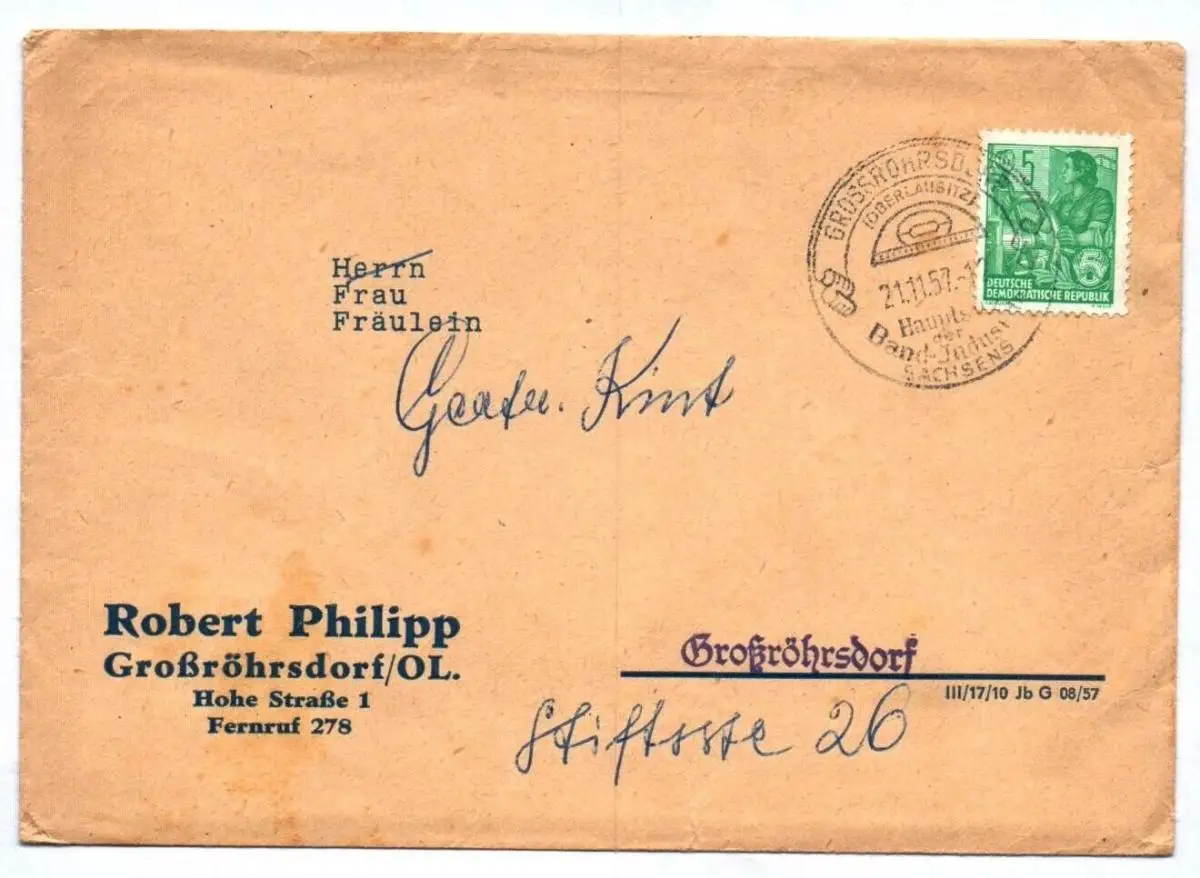 GROSSRÖHRSD
(OBERLAUSITZ)
21.11.57.-1
Haupts
der
Band-Indust
SACHSENS
5
5
DEUTSCHE
DEMOKRATISCHE REPUBLIK
Herrn
Frau
Fräulein
Kint
Robert Philipp
Großröhrsdorf/OL.
Hohe Straße 1
Fernruf 278
Großröhrsdorf
III/17/10 Jb G 08/57
Stiftsstr 26